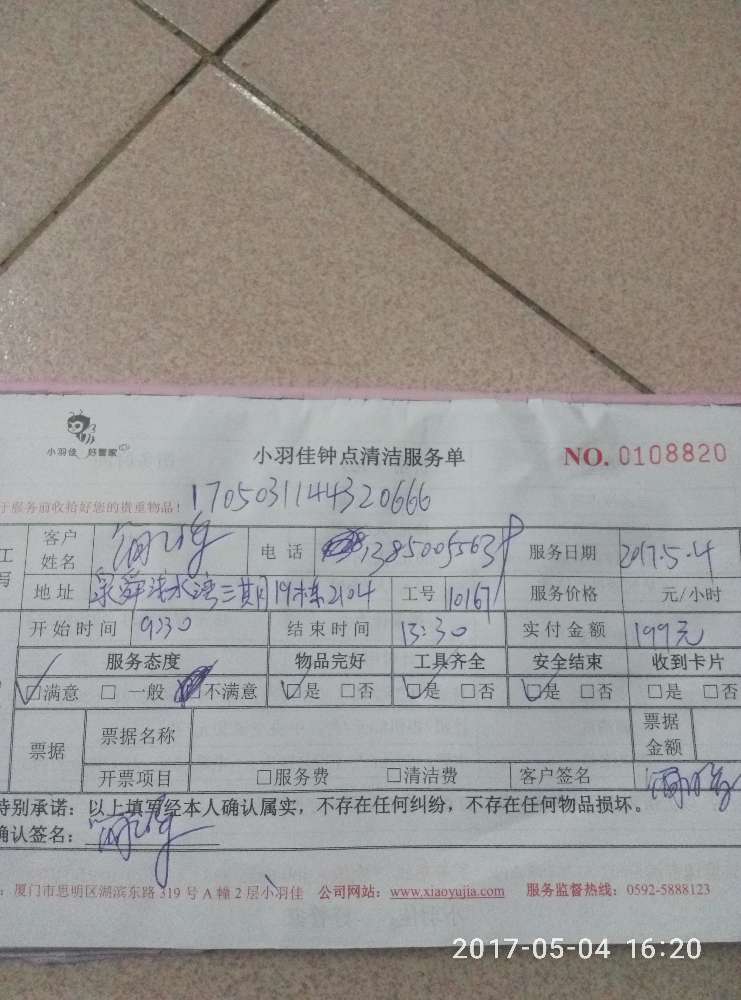 小羽佳 好管家
小羽佳钟点清洁服务单 NO. 0108820
于服务前收拾好您的贵重物品! 1705031144320666
工 客户姓名 电话 服务日期 2017.5.4
写 地址 泉舜滨水湾三期19栋2104 工号 10167 服务价格 元/小时
开始时间 9:30 结束时间 13:30 实付金额 199元
服务态度 物品完好 工具齐全 安全结束 收到卡片
☑满意 □一般 不满意 ☑是 □否 ☑是 □否 ☑是 □否 □是 □否
票据 票据名称 票据金额
开票项目 □服务费 □清洁费 客户签名
特别承诺:以上填写经本人确认属实,不存在任何纠纷,不存在任何物品损坏。
确认签名:
:厦门市思明区湖滨东路 319 号 A 幢 2 层小羽佳 公司网站:www.xiaoyujia.com 服务监督热线:0592-5888123
2017-05-04 16:20